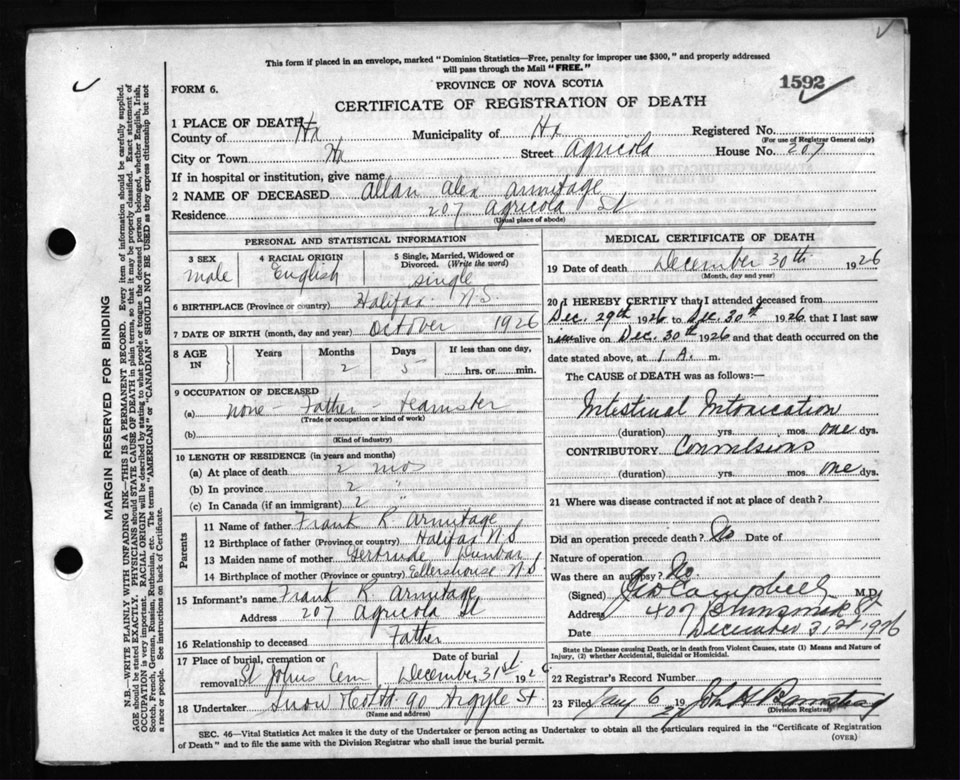 This form if placed in an envelope, marked "Dominion Statistics—Free, penalty for improper use $300," and properly addressed
will pass through the Mail "FREE."
FORM 6.
PROVINCE OF NOVA SCOTIA
1592
CERTIFICATE OF REGISTRATION OF DEATH
1 PLACE OF DEATH
County of Hx Municipality of Hx Registered No.
(For use of Registrar General only)
City or Town Hx Street Agricola House No. 207
If in hospital or institution, give name
2 NAME OF DECEASED Allan Alex Armitage
Residence 207 Agricola St
(Usual place of abode)
PERSONAL AND STATISTICAL INFORMATION
3 SEX
male
4 RACIAL ORIGIN
English
5 Single, Married, Widowed or
Divorced. (Write the word)
single
6 BIRTHPLACE (Province or country) Halifax N.S.
7 DATE OF BIRTH (month, day and year) October 1926
8 AGE
IN
Years
Months
2
Days
5
If less than one day,
hrs. or min.
9 OCCUPATION OF DECEASED
(a) none - Father - teamster
(Trade or occupation or kind of work)
(b)
(Kind of industry)
10 LENGTH OF RESIDENCE (in years and months)
(a) At place of death 2 mos
(b) In province 2 "
(c) In Canada (if an immigrant) 2 "
Parents
11 Name of father Frank R. Armitage
12 Birthplace of father (Province or country) Halifax N.S
13 Maiden name of mother Gertrude Dunbar
14 Birthplace of mother (Province or country) Ellershouse N.S
15 Informant's name Frank R. Armitage
Address 207 Agricola St
16 Relationship to deceased Father
17 Place of burial, cremation or
removal St Johns Cem
Date of burial
December 31st 1926
18 Undertaker Snow & Co Ltd 90 Argyle St
(Name and address)
MEDICAL CERTIFICATE OF DEATH
19 Date of death December 30th 1926
(Month, day and year)
20 I HEREBY CERTIFY that I attended deceased from
Dec. 29th 1926 to Dec. 30th 1926 that I last saw
him alive on Dec. 30th 1926 and that death occurred on the
date stated above, at 1 A. m.
The CAUSE of DEATH was as follows:—
Intestinal Intoxication
(duration) yrs. mos. one dys.
CONTRIBUTORY Convulsions
(duration) yrs. mos. one dys.
21 Where was disease contracted if not at place of death?
Did an operation precede death? No Date of
Nature of operation
Was there an autopsy? No
(Signed) Campbell M.D.
Address 407 Brunswick St
Date December 31st 1926
State the Disease causing Death, or in death from Violent Causes, state (1) Means and Nature of
Injury, (2) whether Accidental, Suicidal or Homicidal.
22 Registrar's Record Number
23 Filed Jany 6 1927 John H
(Division Registrar)
SEC. 46—Vital Statistics Act makes it the duty of the Undertaker or person acting as Undertaker to obtain all the particulars required in the "Certificate of Registration
of Death" and to file the same with the Division Registrar who shall issue the burial permit.
(OVER)
MARGIN RESERVED FOR BINDING
N.B.—WRITE PLAINLY WITH UNFADING INK—THIS IS A PERMANENT RECORD. Every item of information should be carefully supplied.
AGE should be stated EXACTLY. PHYSICIANS should STATE CAUSE OF DEATH in plain terms, so that it may be properly classified. Exact statement of
OCCUPATION is very important. RACIAL ORIGIN will be described by stating to what people or tongue the deceased person belonged, whether English, Irish,
Scotch, French, German, Russian, Ruthenian, etc. The terms "AMERICAN" or "CANADIAN" SHOULD NOT BE USED as they express citizenship but not
a race or people. See instructions on back of Certificate.